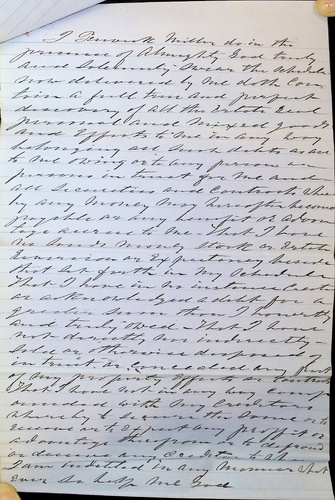 I Miller do in the
presence of Almighty God truly
and Solemnly Swear the Schedule
now delivered by me doth Con
tain a full true and perfect
discovery of all the Estate real
personal and Mixed goods
and Effects to Me in any Way
belonging all Such debts as are
to Me Owing or to any person or
persons in trust for Me and
all Securities and Contracts Where
by any Money May hereafter become
payable or any benefit or advan
tage accrue to Me that I have
no lands Money Stock or Estate
reversion or Expectancy besides
that Set forth in My Schedule
that I have in no instance Created
or acknowledged a debt for a
greater Sum than I honestly
and truly Owed that I have
not directly nor indirectly
Sold or otherwise disposed of
in trust or Concealed any part
of My property Effects or Contracts
that I have not in any Way
with My Creditors
Whereby to secure the Same or to
receive or to Expect any profit or
advantage therefrom or to defraud
or deceive any Creditor to Whom
I am indebted in any Manner What
ever So help Me God